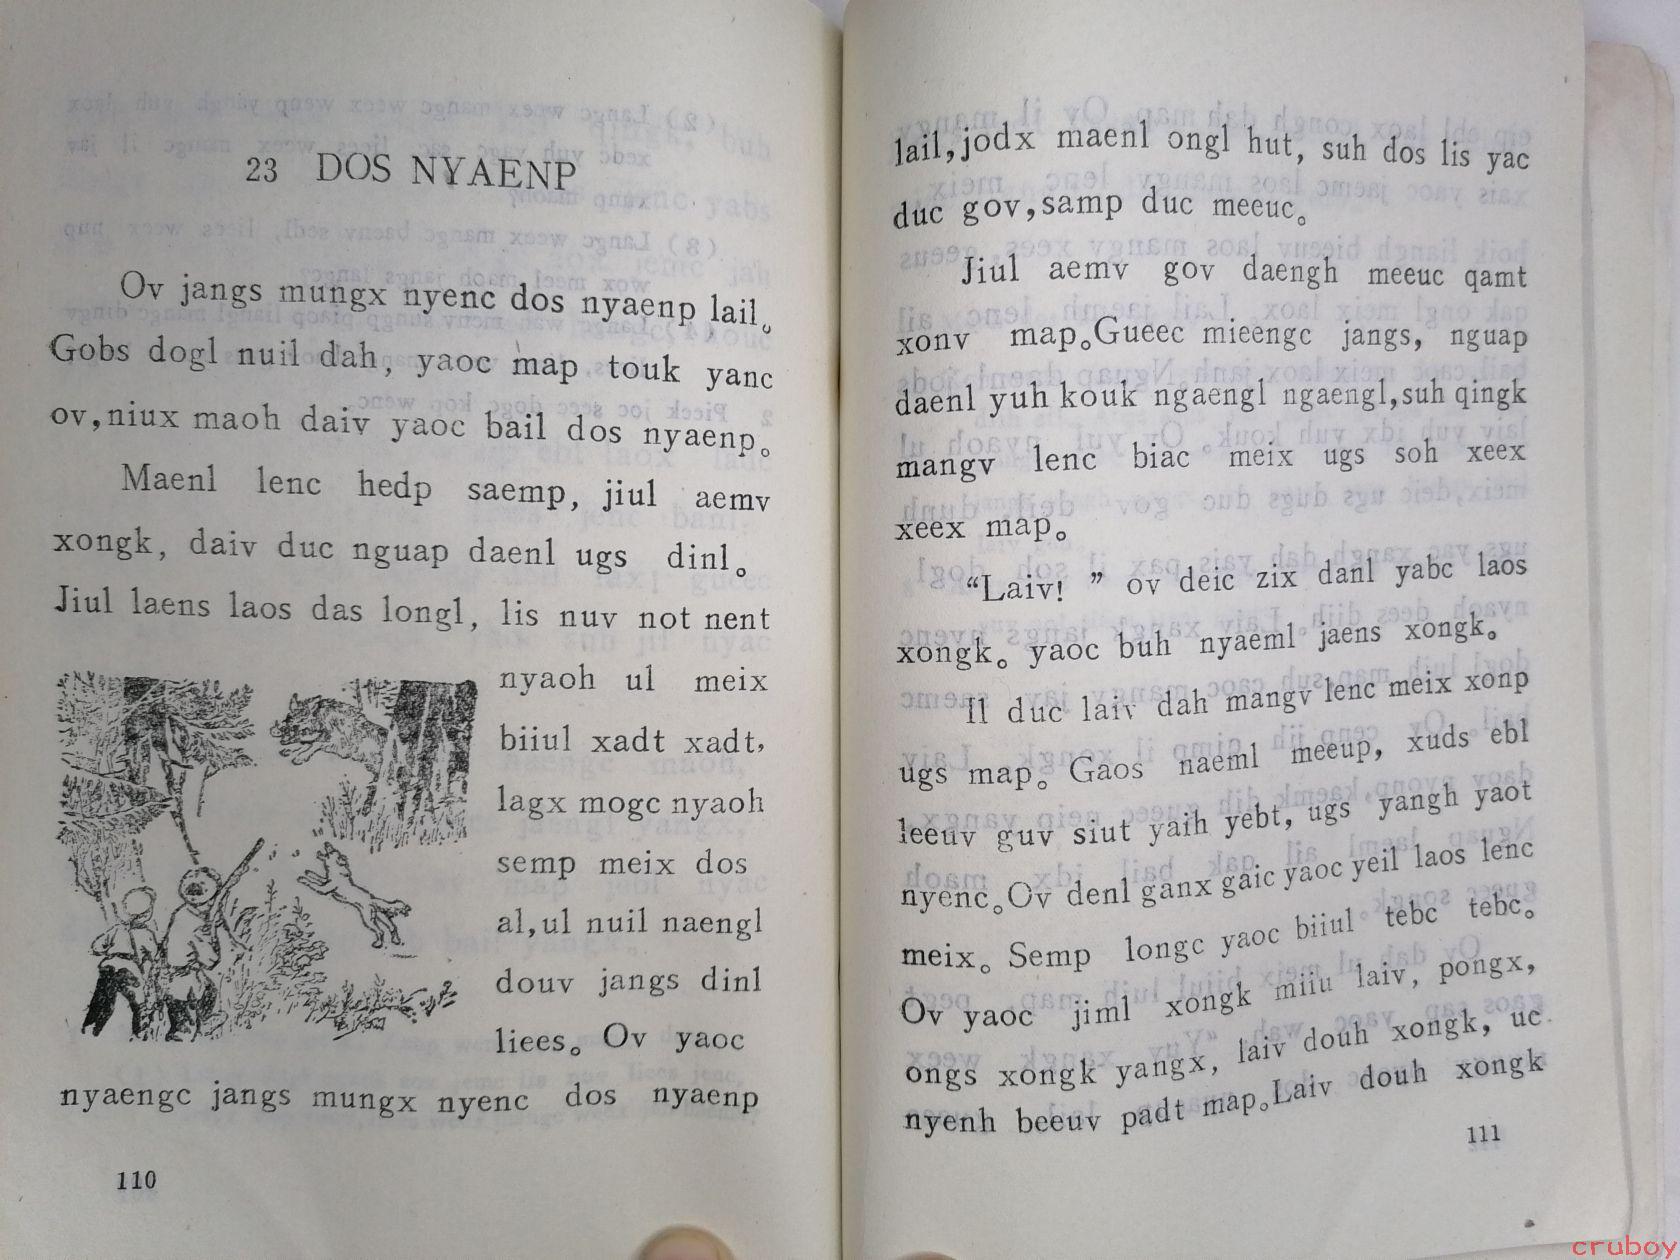 23 DOS NYAENP
Ov jangs mungx nyenc dos nyaenp lail。
Gobs dogl nuil dah, yaoc map touk yanc
ov, niux maoh daiv yaoc bail dos nyaenp。
Maenl lenc hedp saemp, jiul aemv
xongk, daiv duc nguap daenl ugs dinl。
Jiul laens laos das longl, lis nuv not nent
nyaoh ul meix
biiul xadt xadt,
lagx mogc nyaoh
semp meix dos
al, ul nuil naengl
douv jangs dinl
liees。 Ov yaoc
nyaengc jangs mungx nyenc dos nyaenp
110
lail, jodx maenl ongl hut, suh dos lis yac
duc gov, samp duc meeuc。
Jiul aemv gov daengh meeuc qamt
xonv map。Gueec mieengc jangs, nguap
daenl yuh kouk ngaengl ngaengl, suh qingk
mangv lenc biac meix ugs soh xeex
xeex map。
“Laiv! ” ov deic zix danl yabc laos
xongk。 yaoc buh nyaeml jaens xongk。
Il duc laiv dah mangv lenc meix xonp
ugs map。 Gaos naeml meeup, xuds ebl
leeuv guv siut yaih yebt, ugs yangh yaot
nyenc。Ov denl ganx gaic yaoc yeil laos lenc
meix。 Semp longc yaoc biiul tebc tebc。
Ov yaoc jiml xongk miiu laiv, pongx,
ongs xongk yangx, laiv douh xongk, uc
nyenh beeuv padt map。Laiv douh xongk
111
cruboy